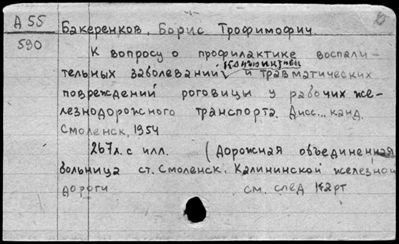 А 55
590
Бакеренков, Борис Трофимофич.
К вопросу о профилактике воспали-
тельных заболеваний конъюнктивы и травматических
повреждений роговицы у рабочих же-
лезнодорожного транспорта. Дисс... канд.
Смоленск, 1954
267 л. с илл. (Дорожная объединенная
больница ст. Смоленск. Калининской железной
дороги см. след карт